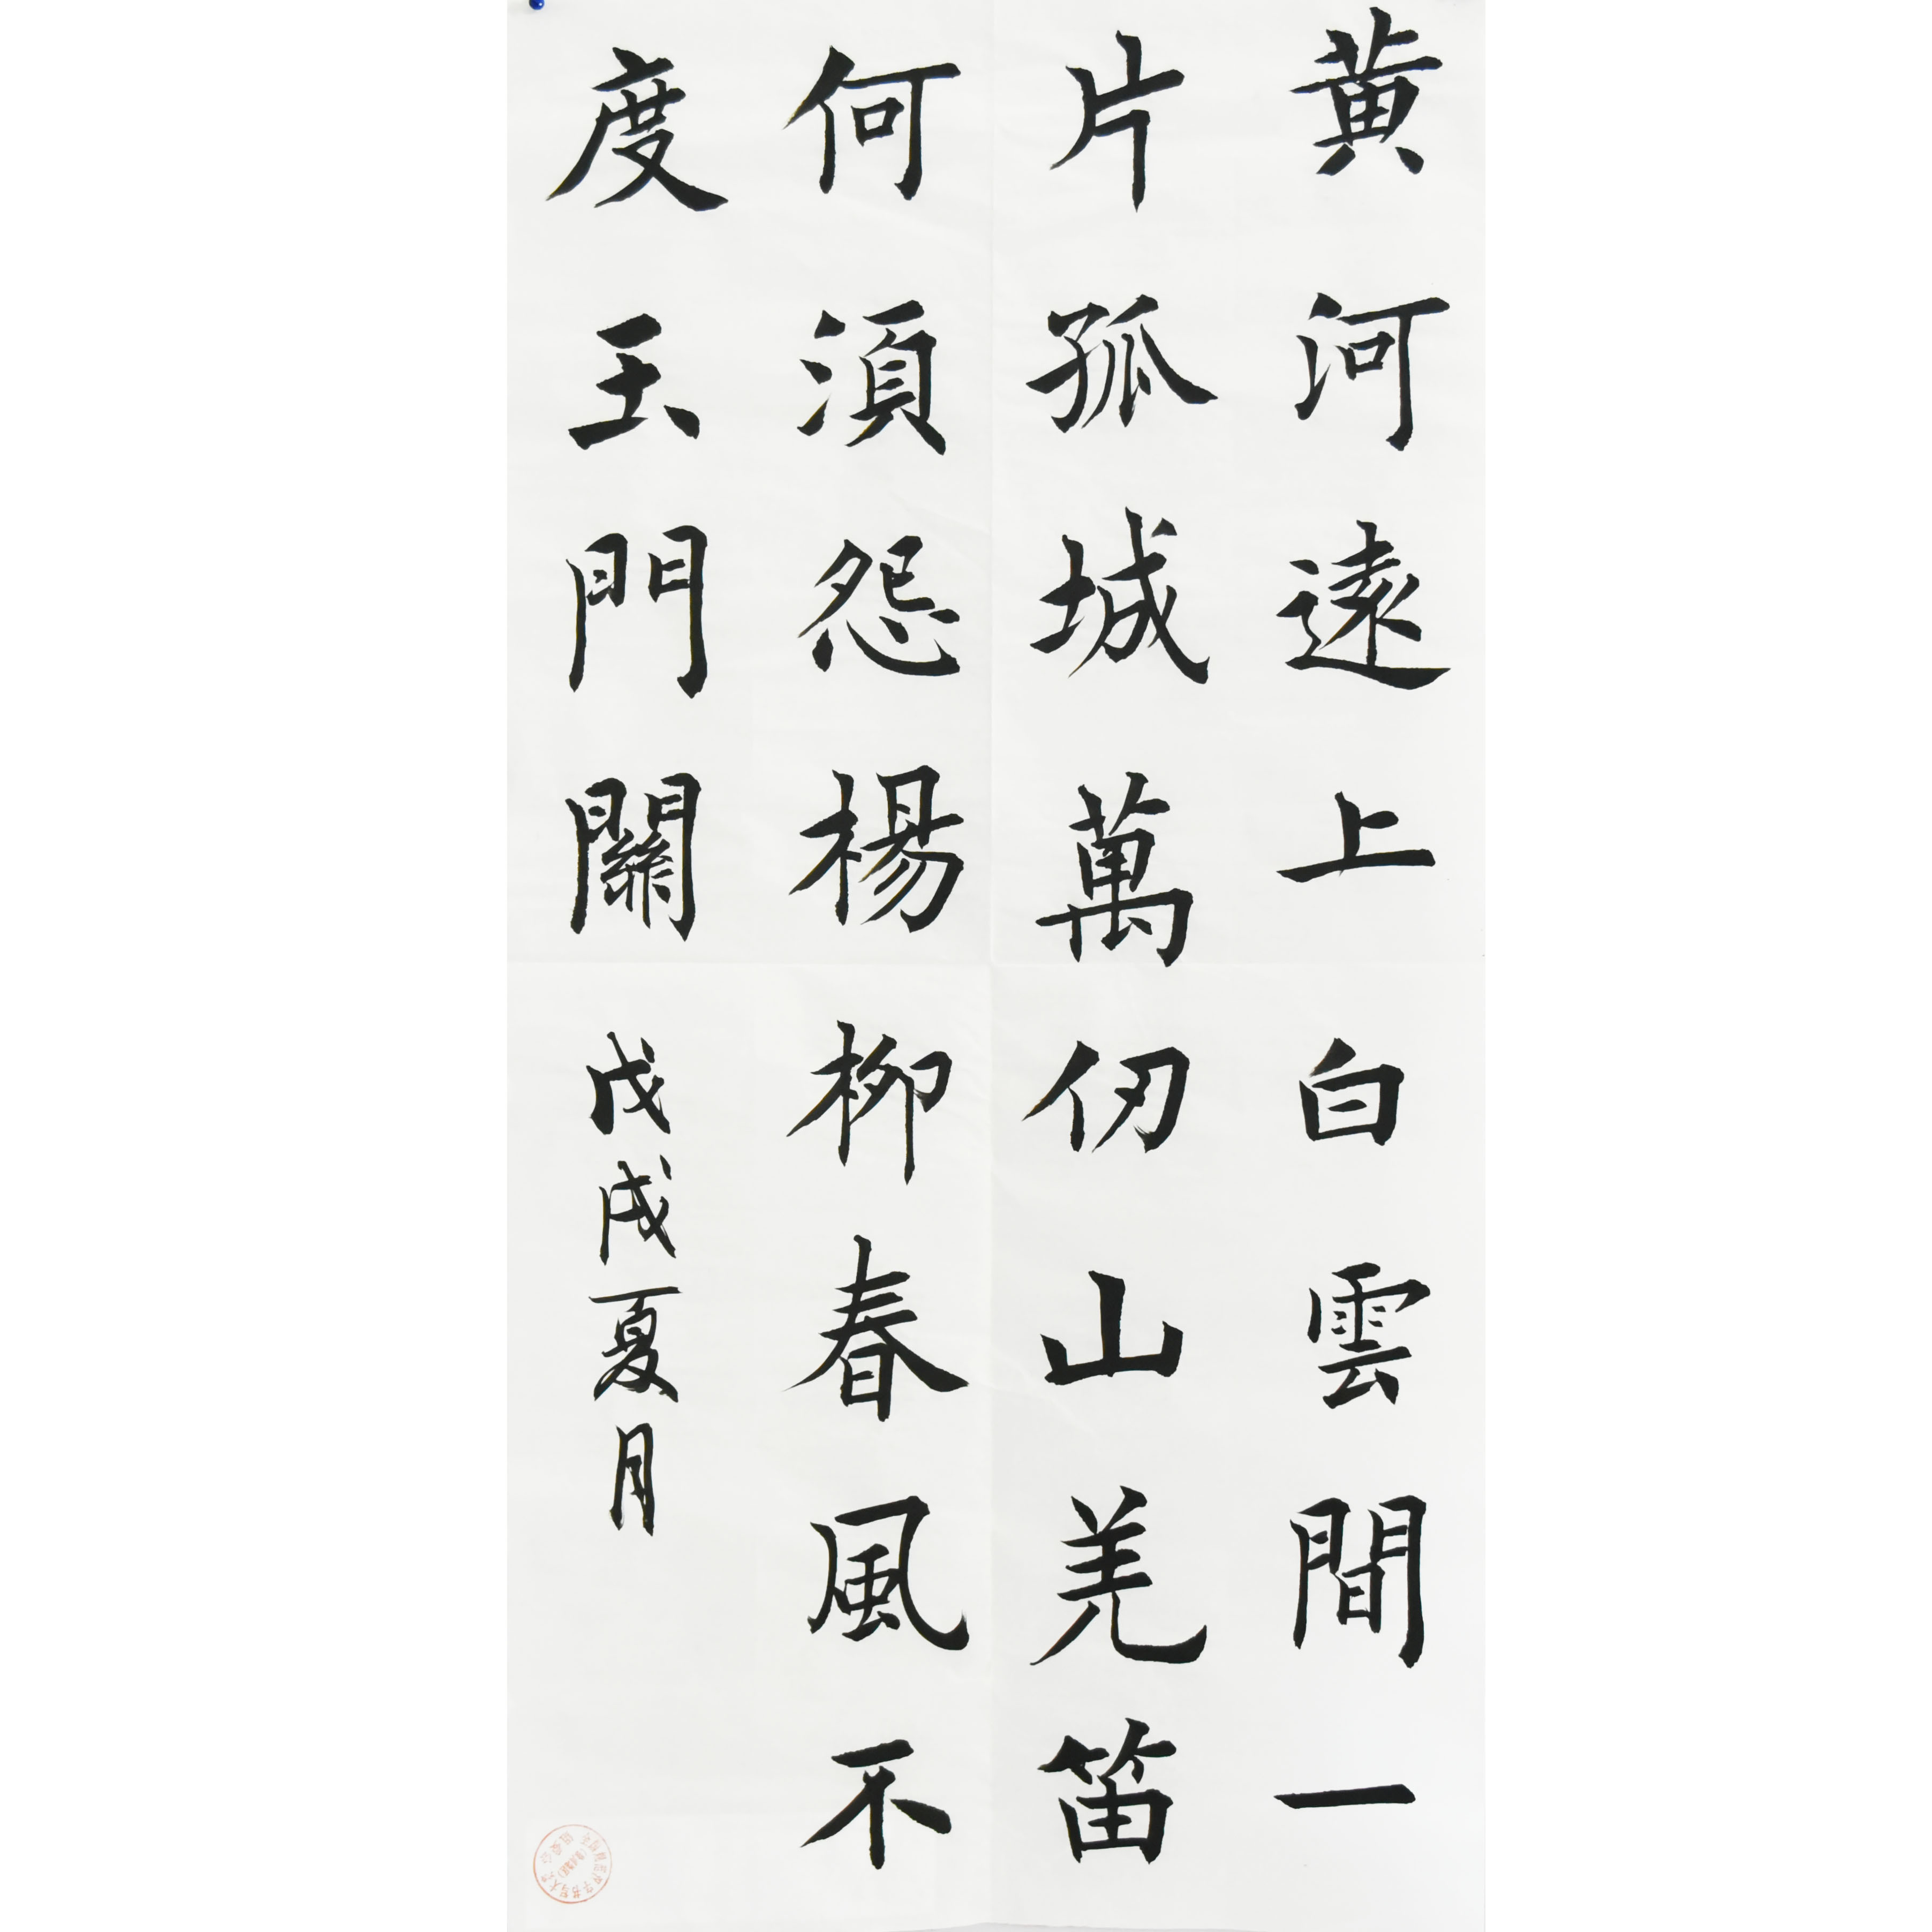 黄河遠上白雲間一
片孤城萬仞山羌笛
何湏怨楊柳春風不
度玉門關
戊戌夏月